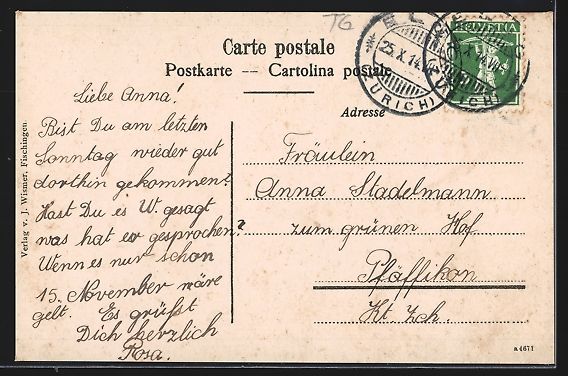 T6
HELVETIA
25.X.14.
(ZÜRICH)
25.X.14.VII
(ZÜRICH)
Carte postale
Postkarte -- Cartolina postale
Adresse
Liebe Anna!
Bist Du am letzten
Sonntag wieder gut
dorthin gekommen?
Hast Du es W. gesagt
was hat er gesprochen?
Wenn es nur schon
15. November wäre
gelt. Es grüßt
Dich herzlich
Rosa.
Fräulein
Anna Stadelmann
zum grünen Hof
Pfäffikon
Kt. Zch.
Verlag v. J. Wismer, Fischingen.
a 4671